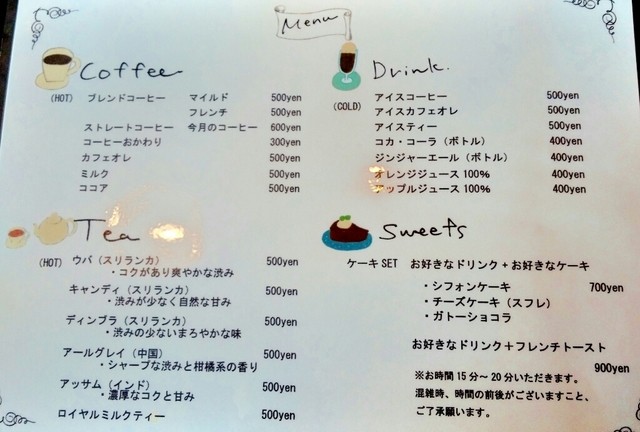 Menu
Coffee
(HOT) ブレンドコーヒー マイルド 500yen
フレンチ 500yen
ストレートコーヒー 今月のコーヒー 600yen
コーヒーおかわり 300yen
カフェオレ 500yen
ミルク 500yen
ココア 500yen
Drink.
(COLD) アイスコーヒー 500yen
アイスカフェオレ 500yen
アイスティー 500yen
コカ・コーラ（ボトル） 400yen
ジンジャーエール（ボトル） 400yen
オレンジジュース 100% 400yen
アップルジュース 100% 400yen
Tea
(HOT) ウバ（スリランカ） 500yen
・コクがあり爽やかな渋み
キャンディ（スリランカ） 500yen
・渋みが少なく自然な甘み
ディンブラ（スリランカ） 500yen
・渋みの少ないまろやかな味
アールグレイ（中国） 500yen
・シャープな渋みと柑橘系の香り
アッサム（インド） 500yen
・濃厚なコクと甘み
ロイヤルミルクティー 500yen
Sweets
ケーキ SET お好きなドリンク + お好きなケーキ
・シフォンケーキ 700yen
・チーズケーキ（スフレ）
・ガトーショコラ
お好きなドリンク＋フレンチトースト
900yen
※お時間 15 分～ 20 分いただきます。
混雑時、時間の前後がございますこと、
ご了承願います。